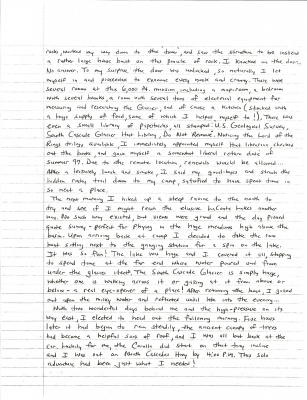 rocks, worked my way down to the "dome" and saw the structure to be instead
a rather large house built on this pinnacle of rock. I knocked on the door...
No answer. To my surprise, the door was unlocked, so naturally I let
myself in and proceeded to examine every nook and cranny. There were
several rooms at this 6,000 ft. mission, including a main room, a bedroom
with several bunks, a room with several tons of electrical equipment for
measuring and researching the Glacier, and of course a Kitchen (stocked with
a huge supply of food, some of which I helped myself to!). There was
even a small library of paperbacks all stamped: U.S. Geological Survey,
South Cascade Glacier Hut Library, Do Not Remove. Noticing the Lord of the
Rings trilogy available I immediately appointed myself Head Librarian, checked
out the books and gave myself a somewhat liberal return date of
Summer 97. Due to the remote location, renewals would be allowed...
After a leisurely lunch and smoke, I said my goodbyes and struck the
hidden rocky trail down to my camp, satisfied to have spent time in
so neat a place.
The next morning I hiked up a steep ravine to the north to
try and see if I might reach the elusive route another
way. No such way existed, but views were grand and the day proved
quite sunny - perfect for playing in the huge meadows high above the
basin. Upon arriving back at camp, I decided to take the row
boat sitting next to the gauging station for a spin on the lake.
It was so fun! The lake was huge and I covered it all, stopping
to spend time at the far end where water poured out from
under the glacier itself. The South Cascade Glacier is simply huge,
whether one is walking across it or gazing at it from above or
below - a real eye-opener of a place! After returning the boat, I gazed
out upon the milky water and reflected until late into the evening...
With two wonderful days behind me and the high-pressure on its
way east, I elected to head out the following morning. Five hours
later it had begun to rain steadily, the ancient canopy of trees
had become a helpful sort of roof, and I was all but back at the
car. Luckily for me, the Corolla did start on that try
and I was out on North Cascades Hwy by 4:00 P.M. This solo
adventure had been just what I needed!